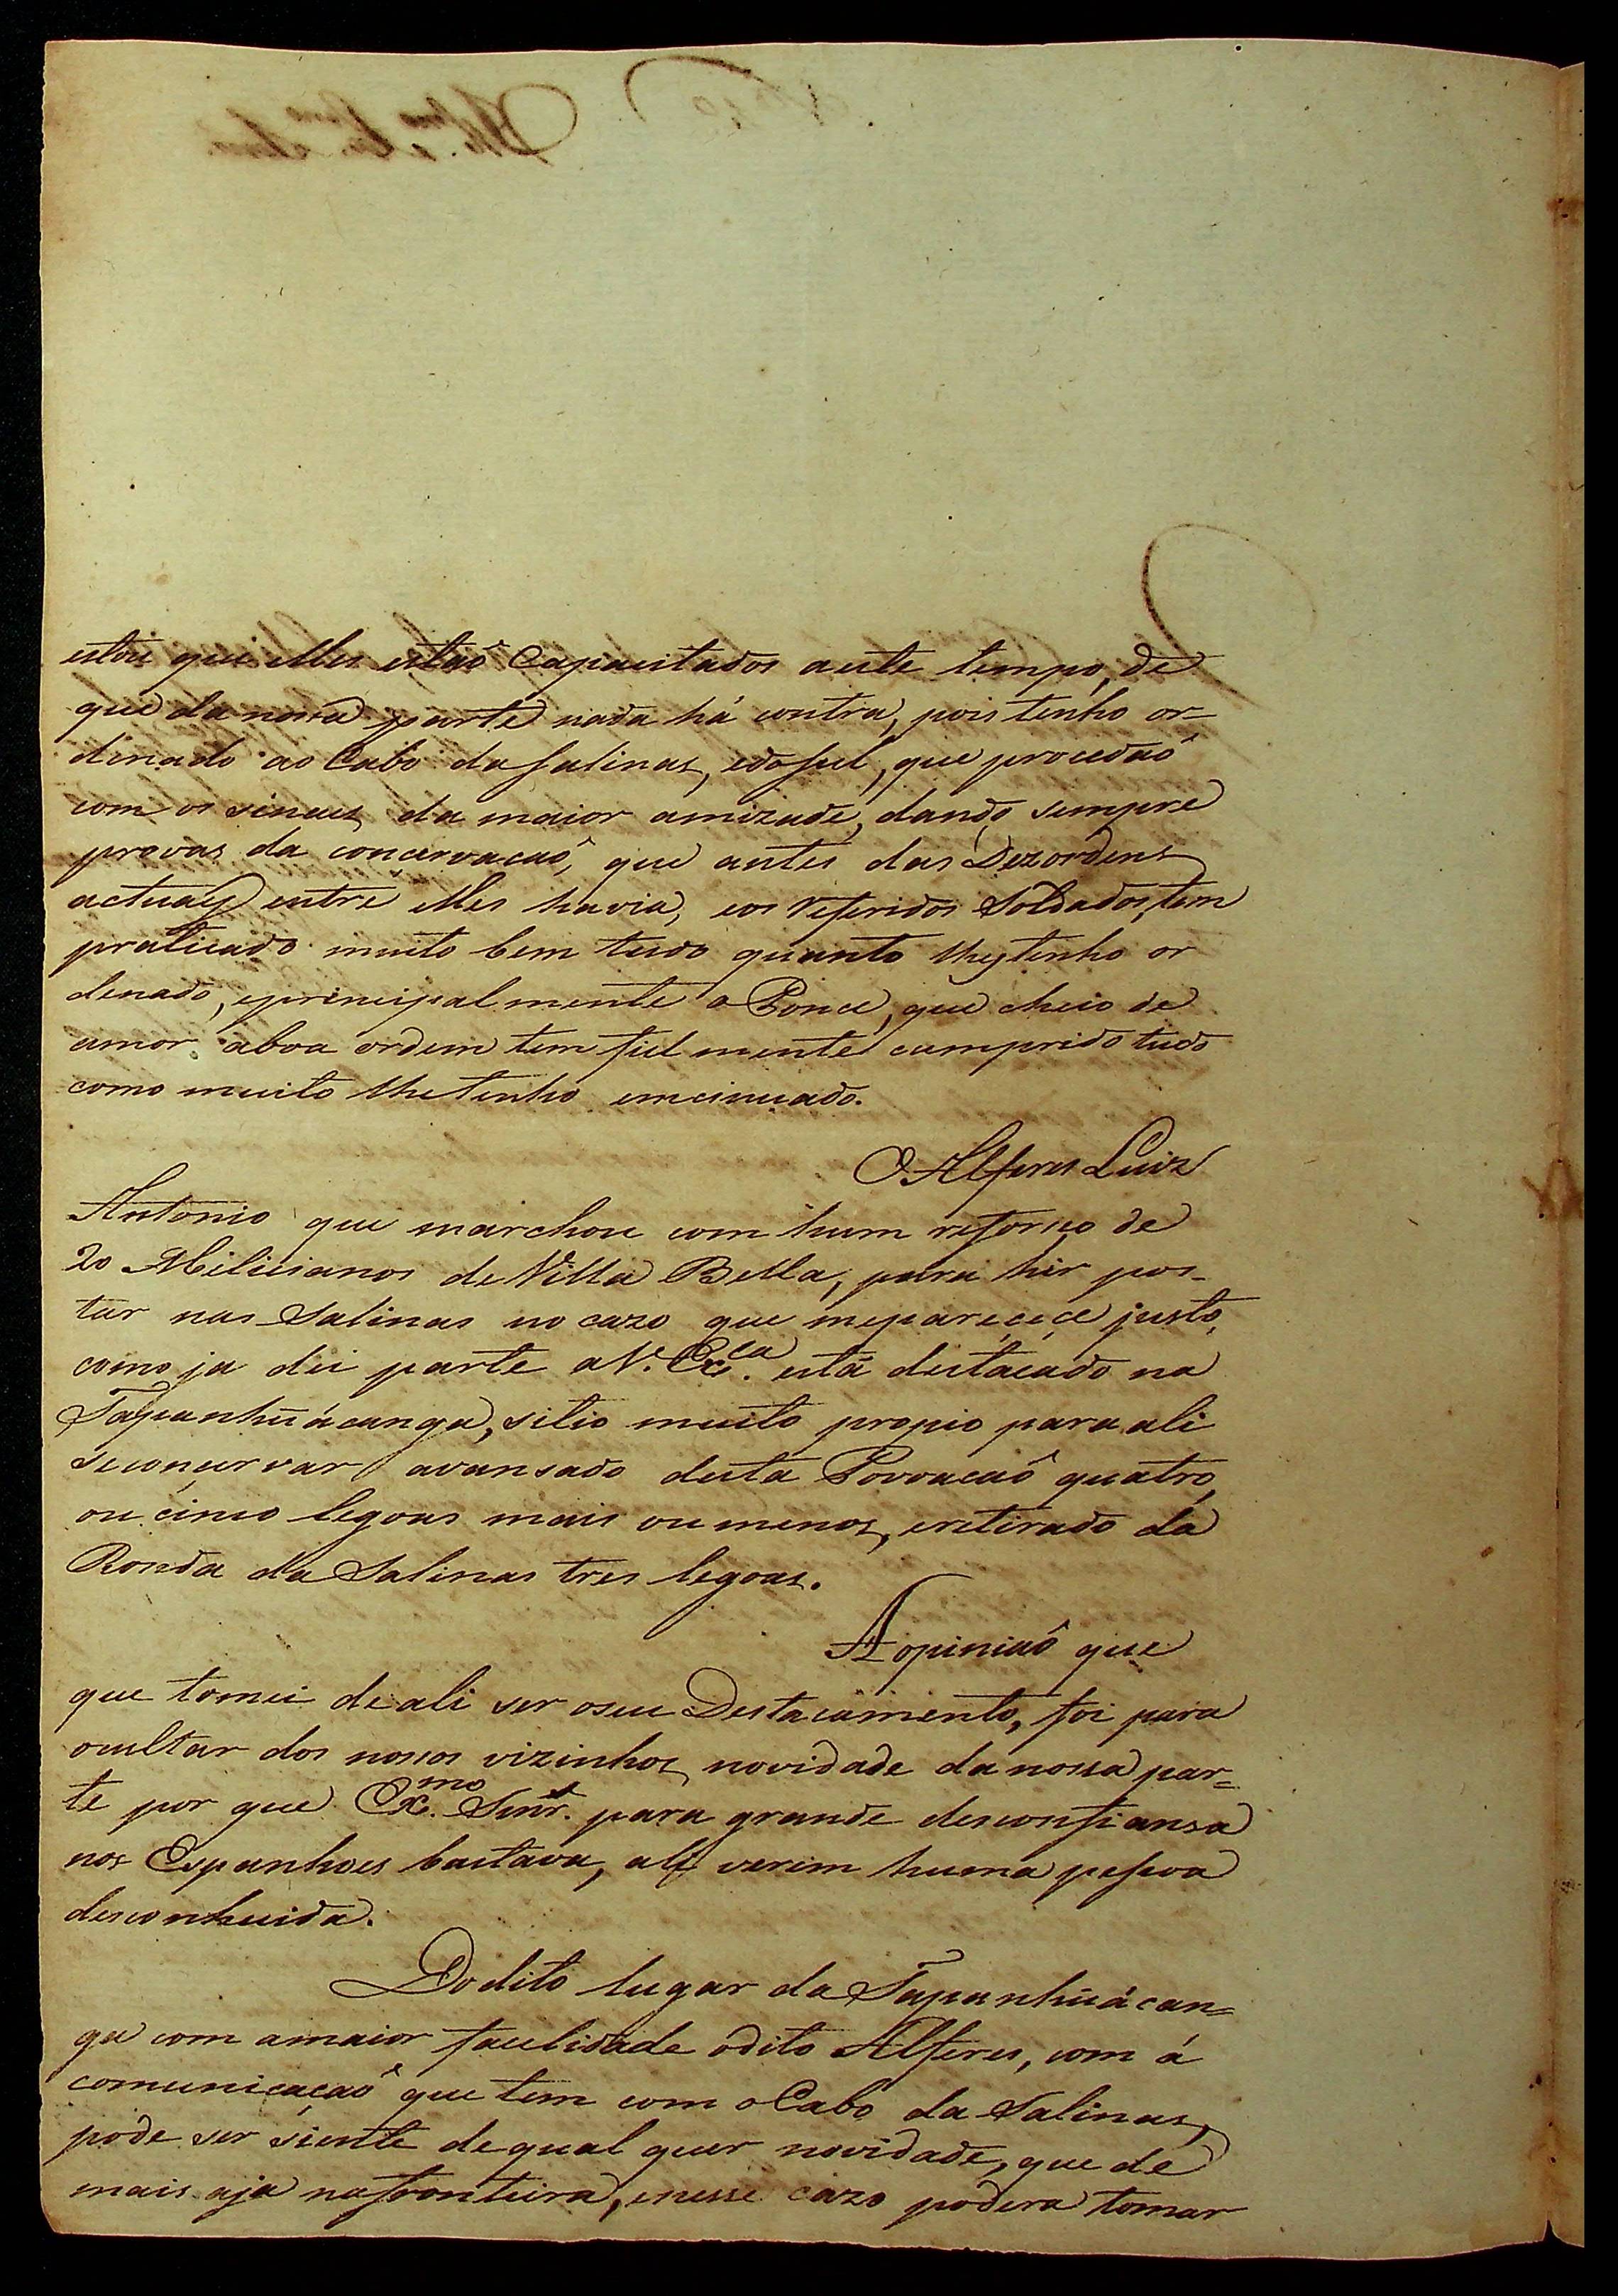 estou que elles estaõ Capacitados aeste tempo, de
que da nossa parte nada há contra, pois tenho or-
dinado ao Cabo da Salinas, edosul, que procedaõ
com os sinaes da maior amizade, dando sempre
provas da concervacaõ, que antes das Dezordens
actuaes entre elles havia, eos referidos Soldados, tem
praticado muito bem tudo quanto lhes tenho or
denado, eprincipalmente o Ponce, que cheio de
amor áboa ordem tem fielmente cumprido tudo
como muito lhe tenho emcinuado.
O Alferes Luiz
Antonio que marchou com hum reforso de
20 Milicianos de Villa Bella, para hir pos-
tar nas Salinas no cazo que mepareçece justo,
como ja dei parte a V. Exca. está destacado na
Tapanhũácanga, sitio muito propio para ali
seconcervar avansado desta Povoacaõ quatro,
ou cinco legoas mais oumenos, eretirado da
Ronda da Salinas tres legoas.
A opiniaõ que
que tomei deali ser oseu Destacamento, foi para
ocultar dos nossos vizinhos novidade danossa par=
te por que Exmo. Snr. para grande desconfiansa
nos Espanhoes bastava, ali verem huma pessoa
desconhecida.
Dodito lugar da Tapanhũácan=
ga com amaior facilidade odito Alferes, com á
comunicaçaõ que tem com oCabo da Salinas,
pode ser siente dequal quer novidade, que de
mais aja nafronteira, enesse cazo podera tomar